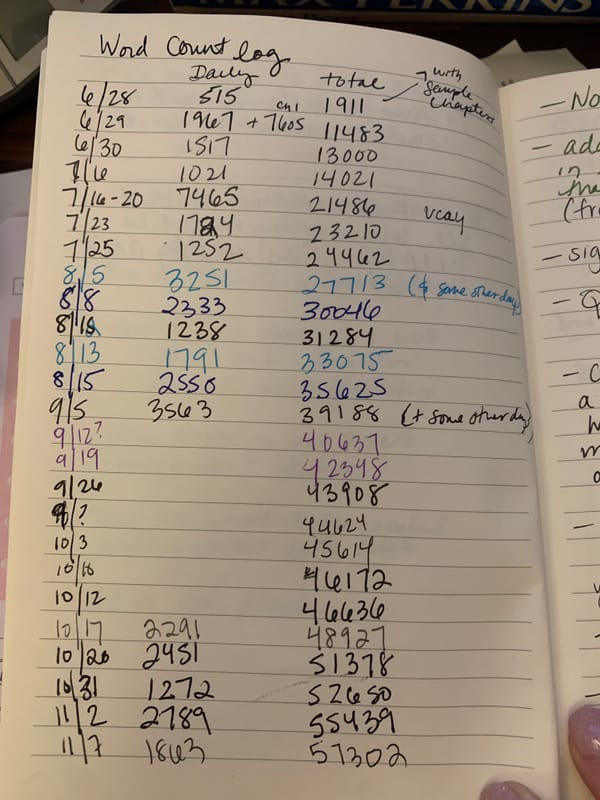 MAX PERKINS
Word Count log
Daily total → with sample chapters
6/28 515 1911
6/29 1967 + ch1 7605 11483
6/30 1517 13000
7/6 1021 14021
7/16-20 7465 21486 vcay
7/23 1724 23210
7/25 1252 24462
8/5 3251 27713 (& some other days)
8/8 2333 30046
8/ 1238 31284
8/13 1791 33075
8/15 2550 35625
9/5 3563 39188 (+ some other day)
9/12? 40637
9/19 42348
9/26 43908
? 44624
10/3 45614
10/10 46172
10/12 46636
10/17 2291 48927
10/26 2451 51378
10/31 1272 52650
11/2 2789 55439
11/7 1863 57302
— No
— add
in
(fr
— sig
— C
a